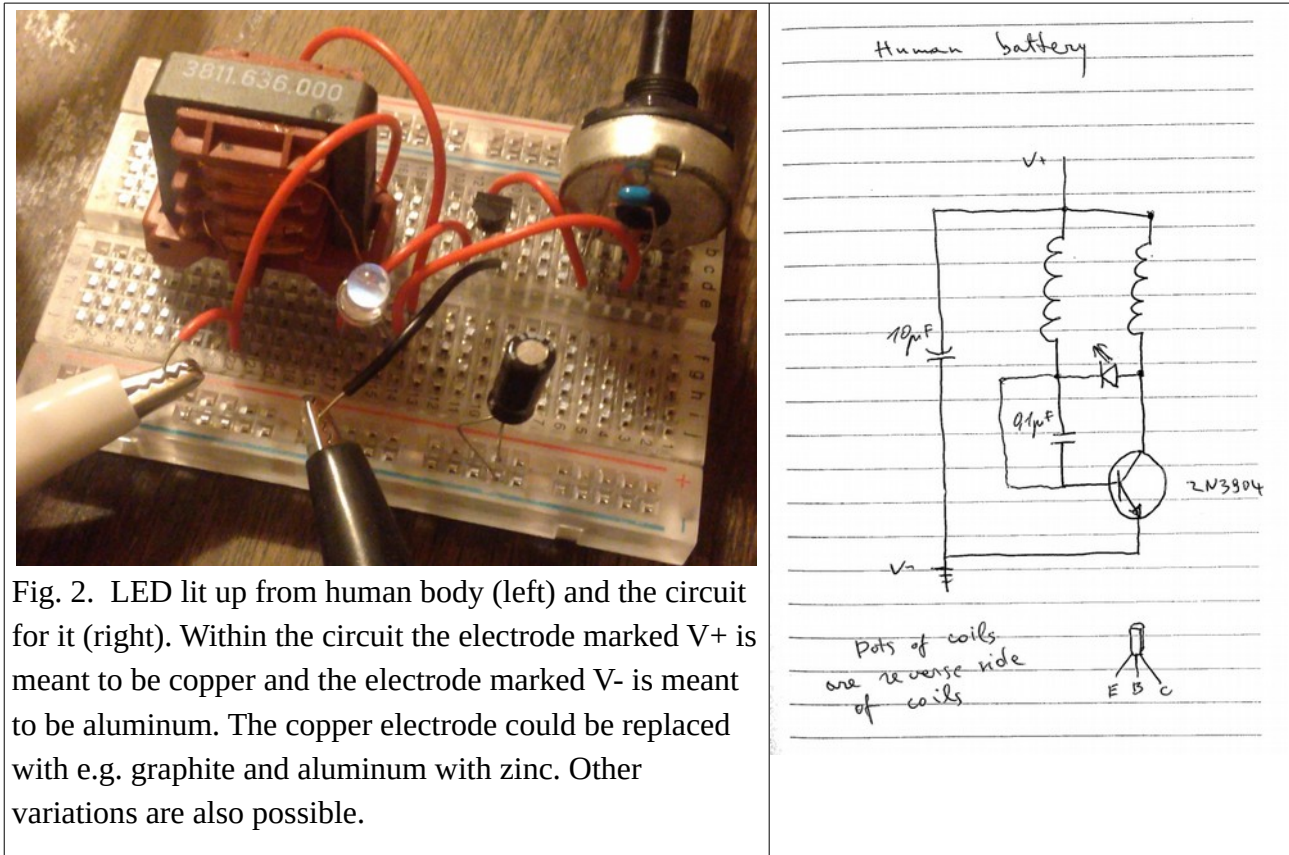 3811.636.000
a
b
c
d
e
f
g
h
i
j
+
-
Fig. 2. LED lit up from human body (left) and the circuit
for it (right). Within the circuit the electrode marked V+ is
meant to be copper and the electrode marked V- is meant
to be aluminum. The copper electrode could be replaced
with e.g. graphite and aluminum with zinc. Other
variations are also possible.
Human battery
V+
10µF
0,1µF
2N3904
V-
Dots of coils
are reverse side
of coils
E B C